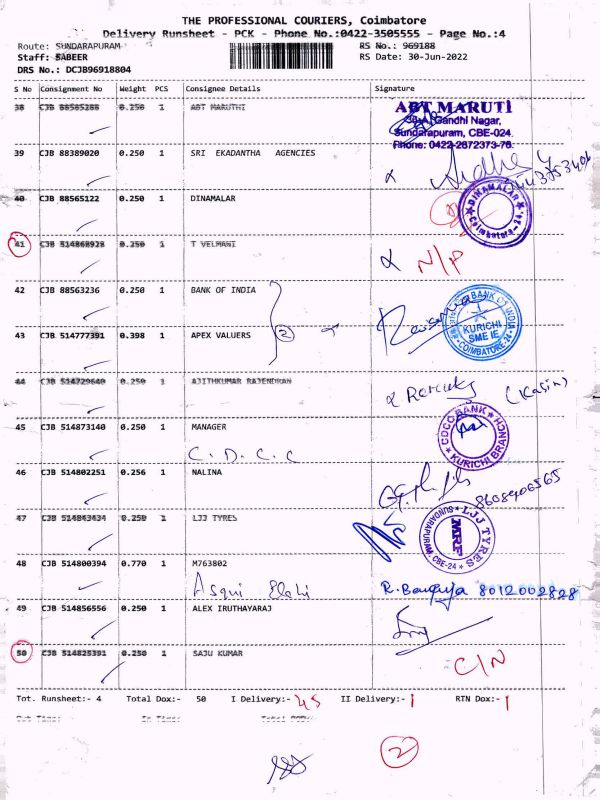 THE PROFESSIONAL COURIERS, Coimbatore
Delivery Runsheet - PCK - Phone No.:0422-3505555 - Page No.:4
Route: SUNDARAPURAM RS No.: 969188
Staff: SABEER RS Date: 30-Jun-2022
DRS No.: DCJB96918804
S No Consignment No Weight PCS Consignee Details Signature
38 CJB 88565288 0.250 1 ABT MARUTHI
ABT MARUTI
Gandhi Nagar,
Sundarapuram, CBE-024.
Phone: 0422-2672373-76.
39 CJB 88389020 0.250 1 SRI EKADANTHA AGENCIES
40 CJB 88565122 0.250 1 DINAMALAR
DINAMALAR
Coimbatore-24.
41 CJB 514868928 0.250 1 T VELMANI N/P
42 CJB 88563236 0.250 1 BANK OF INDIA
BANK OF INDIA
KURICHI
SME IE
COIMBATORE
43 CJB 514777391 0.398 1 APEX VALUERS
2
44 CJB 514729640 0.250 1 AJITHKUMAR RAJENDRAN
45 CJB 514873140 0.250 1 MANAGER
C. D. C. C
BANK
KURICHI BRANCH
46 CJB 514802251 0.256 1 NALINA
8608406565
47 CJB 514843434 0.250 1 LJJ TYRES
LJJ TYRES
MRF
SUNDARAPURAM, CBE-24
48 CJB 514800394 0.770 1 M763802
8012002828
49 CJB 514856556 0.250 1 ALEX IRUTHAYARAJ
50 CJB 514825391 0.250 1 SAJU KUMAR C/N
Tot. Runsheet:- 4 Total Dox:- 50 I Delivery:- 45 II Delivery:- 1 RTN Dox:- 1
Out Time: In Time:
2